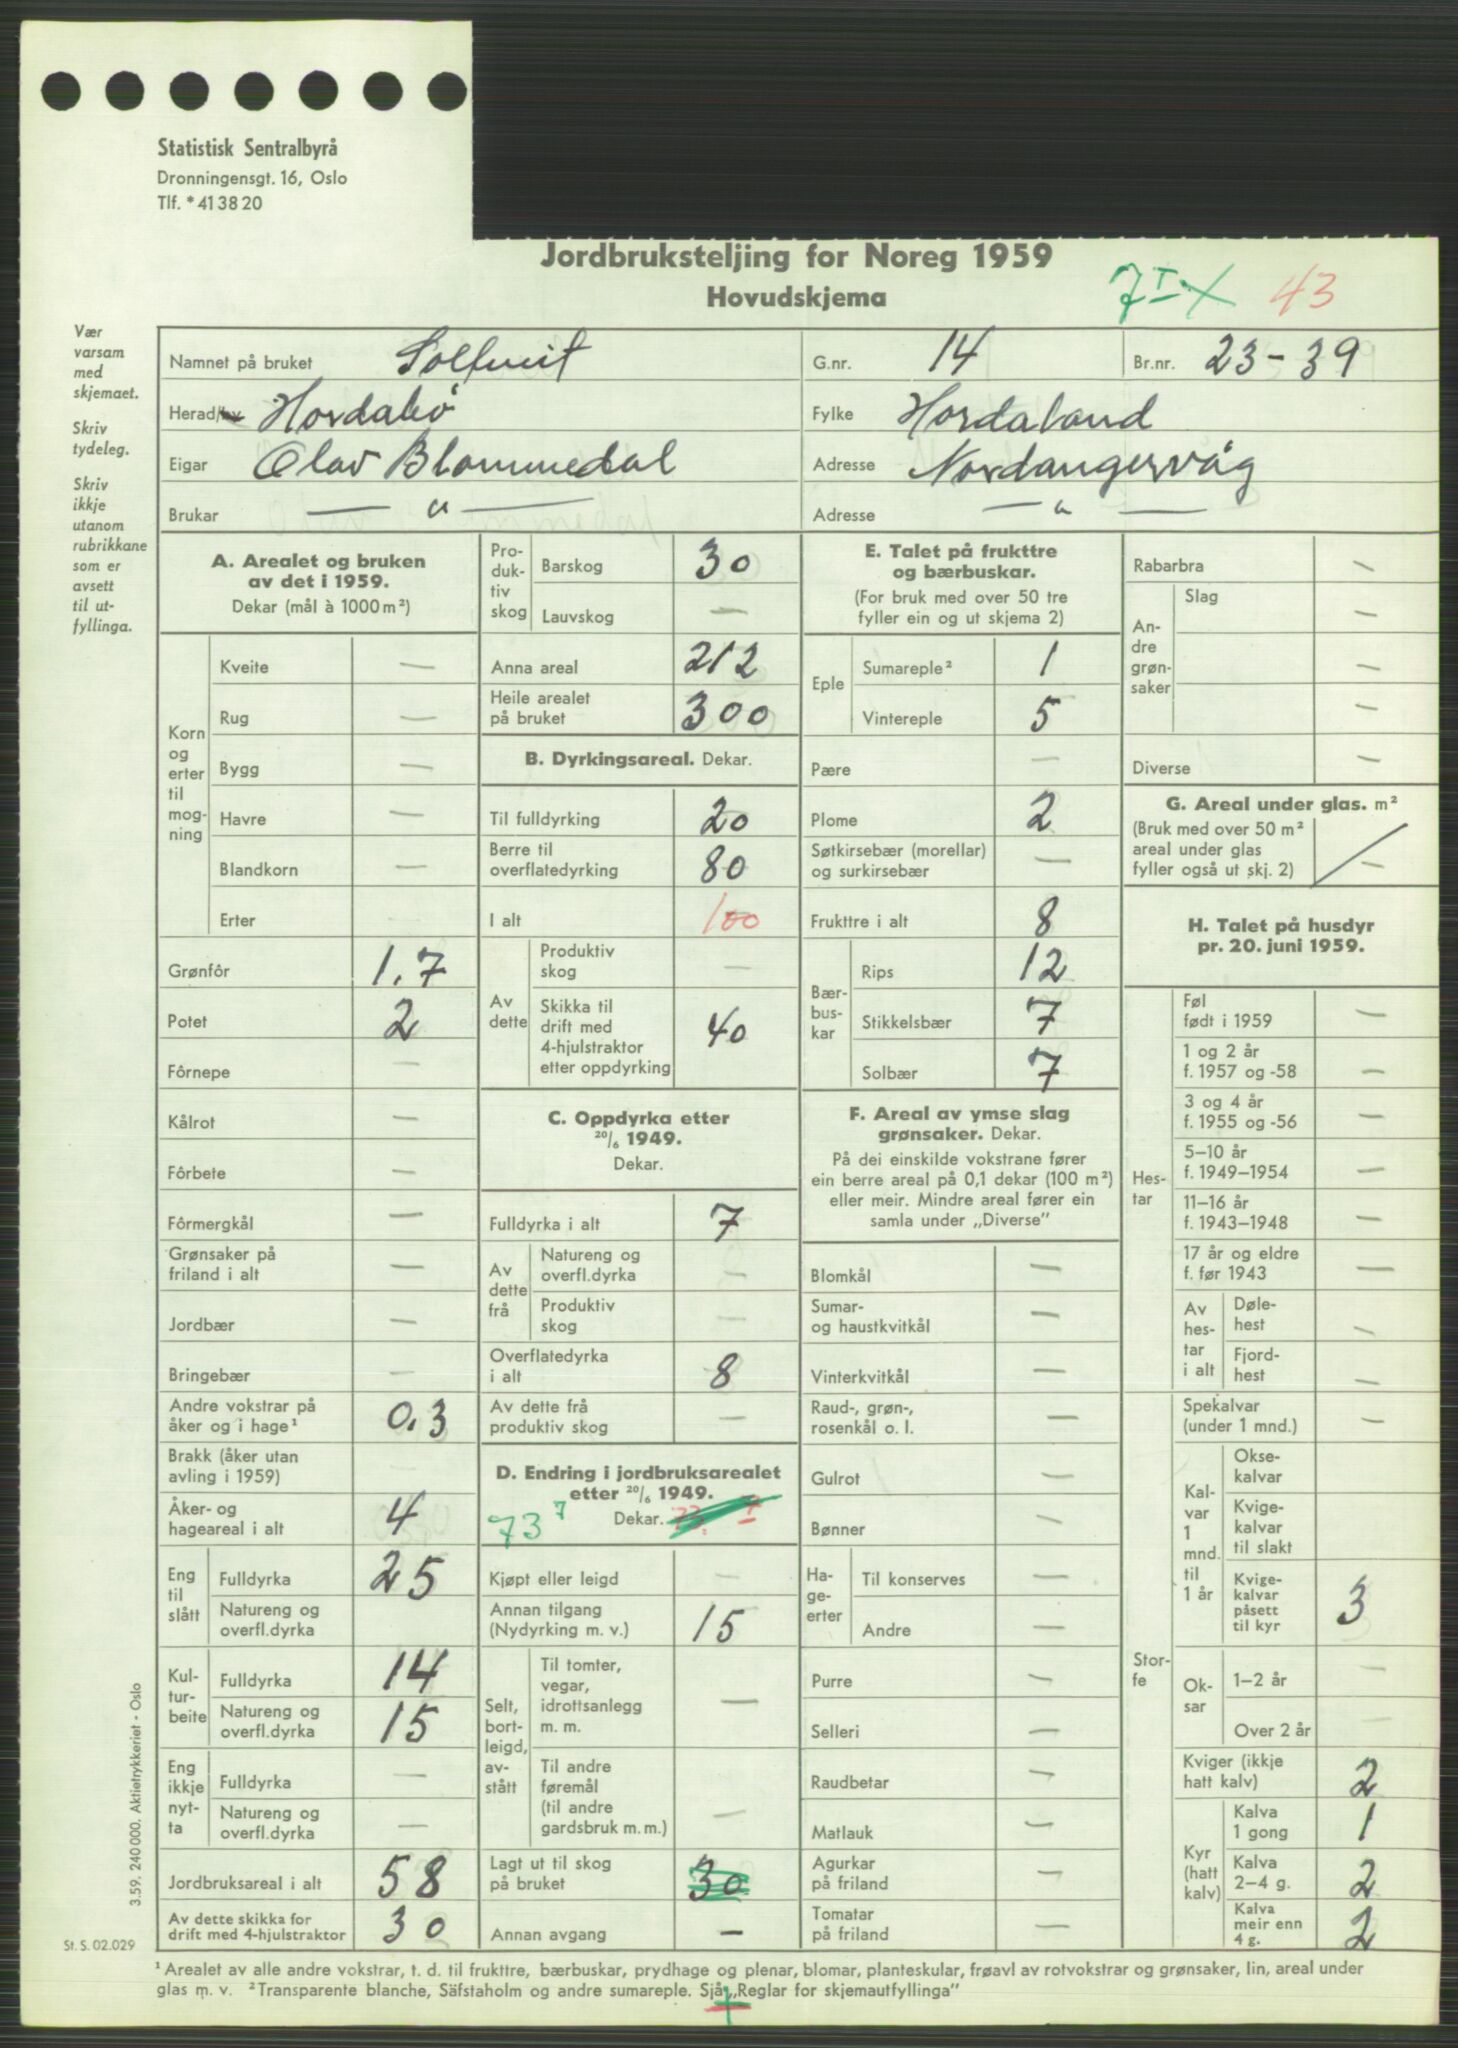 Statistisk Sentralbyrå
Dronningensgt. 16, Oslo
Tlf. * 41 38 20
Jordbruksteljing for Noreg 1959
Hovudskjema
7 I X 43
Vær varsam med skjemaet.
Skriv tydeleg.
Skriv ikkje utanom rubrikkane som er avsett til ut-fyllinga.
Namnet på bruket Soltveit G.nr. 14 Br.nr. 23-39
Herad/by Hordabø Fylke Hordaland
Eigar Olav Blommedal Adresse Nordangervåg
Brukar — " — Adresse — " —
A. Arealet og bruken
av det i 1959.
Dekar (mål à 1000 m²)
Korn og erter til mog-ning
Kveite —
Rug —
Bygg —
Havre —
Blandkorn —
Erter —
Grønfôr 1.7
Potet 2
Fôrnepe —
Kålrot —
Fôrbete —
Fôrmergkål —
Grønsaker på
friland i alt —
Jordbær —
Bringebær —
Andre vokstrar på
åker og i hage¹ 0.3
Brakk (åker utan
avling i 1959) —
Åker- og
hageareal i alt 4
Eng til slått
Fulldyrka 25
Natureng og
overfl.dyrka
Kul-tur-beite
Fulldyrka 14
Natureng og
overfl.dyrka 15
Eng ikkje nyt-ta
Fulldyrka —
Natureng og
overfl.dyrka —
Jordbruksareal i alt 58
Av dette skikka for
drift med 4-hjulstraktor 30
Pro-duk-tiv skog
Barskog 30
Lauvskog —
Anna areal 212
Heile arealet
på bruket 300
B. Dyrkingsareal. Dekar.
Til fulldyrking 20
Berre til
overflatedyrking 80
I alt 100
Av dette
Produktiv
skog —
Skikka til
drift med
4-hjulstraktor
etter oppdyrking 40
C. Oppdyrka etter
20/6 1949.
Dekar.
Fulldyrka i alt 7
Av dette frå
Natureng og
overfl.dyrka —
Produktiv
skog —
Overflatedyrka
i alt 8
Av dette frå
produktiv skog —
D. Endring i jordbruksarealet
etter 20/6 1949.
73 7 Dekar. 73. 7
Kjøpt eller leigd —
Annan tilgang
(Nydyrking m. v.) 15
Selt, bort-leigd, av-stått
Til tomter,
vegar,
idrottsanlegg
m. m. —
Til andre
føremål
(til andre
gardsbruk m. m.) —
Lagt ut til skog
på bruket 30
Annan avgang —
E. Talet på frukttre
og bærbuskar.
(For bruk med over 50 tre
fyller ein og ut skjema 2)
Eple
Sumareple² 1
Vintereple 5
Pære —
Plome 2
Søtkirsebær (morellar)
og surkirsebær —
Frukttre i alt 8
Bær-bus-kar
Rips 12
Stikkelsbær 7
Solbær 7
F. Areal av ymse slag
grønsaker. Dekar.
På dei einskilde vokstrane fører
ein berre areal på 0,1 dekar (100 m²)
eller meir. Mindre areal fører ein
samla under „Diverse”
Blomkål —
Sumar-
og haustkvitkål —
Vinterkvitkål —
Raud-, grøn-,
rosenkål o. l. —
Gulrot —
Bønner —
Ha-ge-erter
Til konserves —
Andre —
Purre —
Selleri —
Raudbetar —
Matlauk —
Agurkar
på friland —
Tomatar
på friland —
Rabarbra —
An-dre grøn-saker
Slag —
—
—
Diverse —
G. Areal under glas. m²
(Bruk med over 50 m²
areal under glas
fyller også ut skj. 2) —
H. Talet på husdyr
pr. 20. juni 1959.
Hes-tar
Føl
født i 1959 —
1 og 2 år
f. 1957 og -58 —
3 og 4 år
f. 1955 og -56 —
5–10 år
f. 1949–1954 —
11–16 år
f. 1943–1948 —
17 år og eldre
f. før 1943 —
Av hes-tar i alt
Døle-hest —
Fjord-hest —
Stor-fe
Spekalvar
(under 1 mnd.) —
Kal-var 1 mnd. til 1 år
Okse-kalvar
Kvige-kalvar til slakt
Kvige-kalvar påsett til kyr 3
Ok-sar
1–2 år —
Over 2 år —
Kviger (ikkje
hatt kalv) 2
Kyr (hatt kalv)
Kalva
1 gong 1
Kalva
2–4 g. 2
Kalva
meir enn
4 g. 2
3.59. 240 000. Aktietrykkeriet - Oslo
St. S. 02.029
¹ Arealet av alle andre vokstrar, t. d. til frukttre, bærbuskar, prydhage og plenar, blomar, planteskular, frøavl av rotvokstrar og grønsaker, lin, areal under
glas m. v. ² Transparente blanche, Säfstaholm og andre sumareple. Sjå „Reglar for skjemautfyllinga”